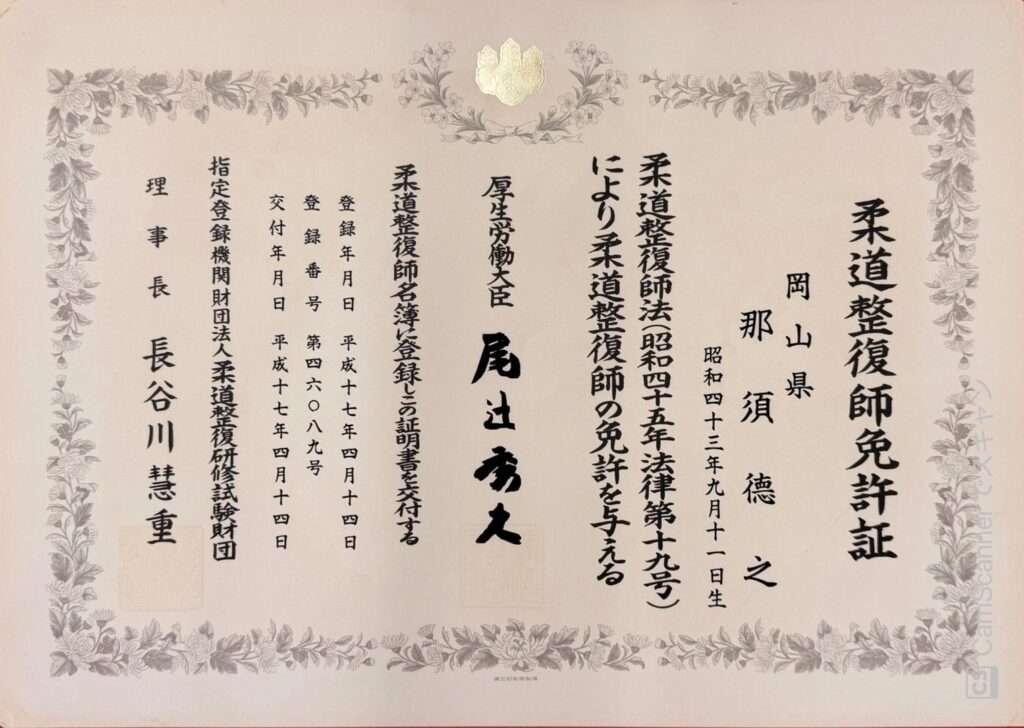 柔道整復師免許証
岡山県
那須徳之
昭和四十三年九月十一日生
柔道整復師法(昭和四十五年法律第十九号)
により柔道整復師の免許を与える
厚生労働大臣 尾辻秀久
柔道整復師名簿に登録しこの証明書を交付する
登録年月日 平成十七年四月十四日
登録番号 第四六〇八九号
交付年月日 平成十七年四月十四日
指定登録機関財団法人柔道整復研修試験財団
理事長 長谷川慧重
CS CamScanner でスキャン